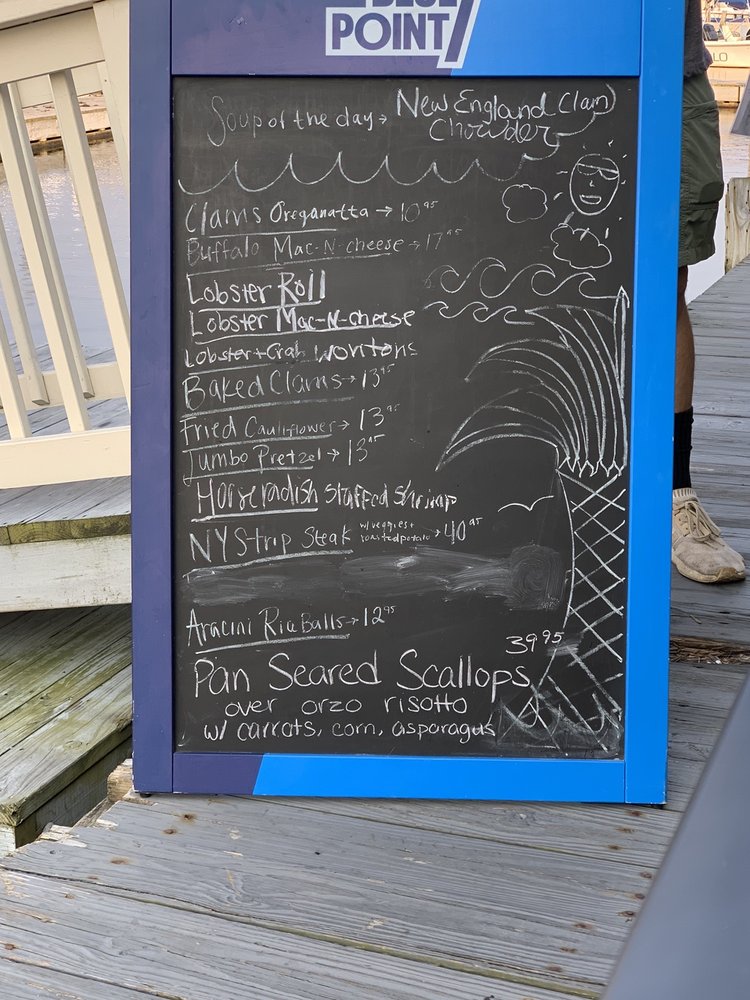 POINT
Soup of the day → New England Clam
Chowder
Clams Oreganatta → 10.95
Buffalo Mac-N-cheese → 17.95
Lobster Roll
Lobster Mac-N-cheese
Lobster + Crab Wontons
Baked Clams → 13.95
Fried Cauliflower → 13.95
Jumbo Pretzel → 13.95
Horseradish Stuffed Shrimp
NY Strip Steak w/veggies + roasted potato → 40.95
Aracini Rice Balls → 12.95
39.95
Pan Seared Scallops
over orzo risotto
w/ carrots, corn, asparagus